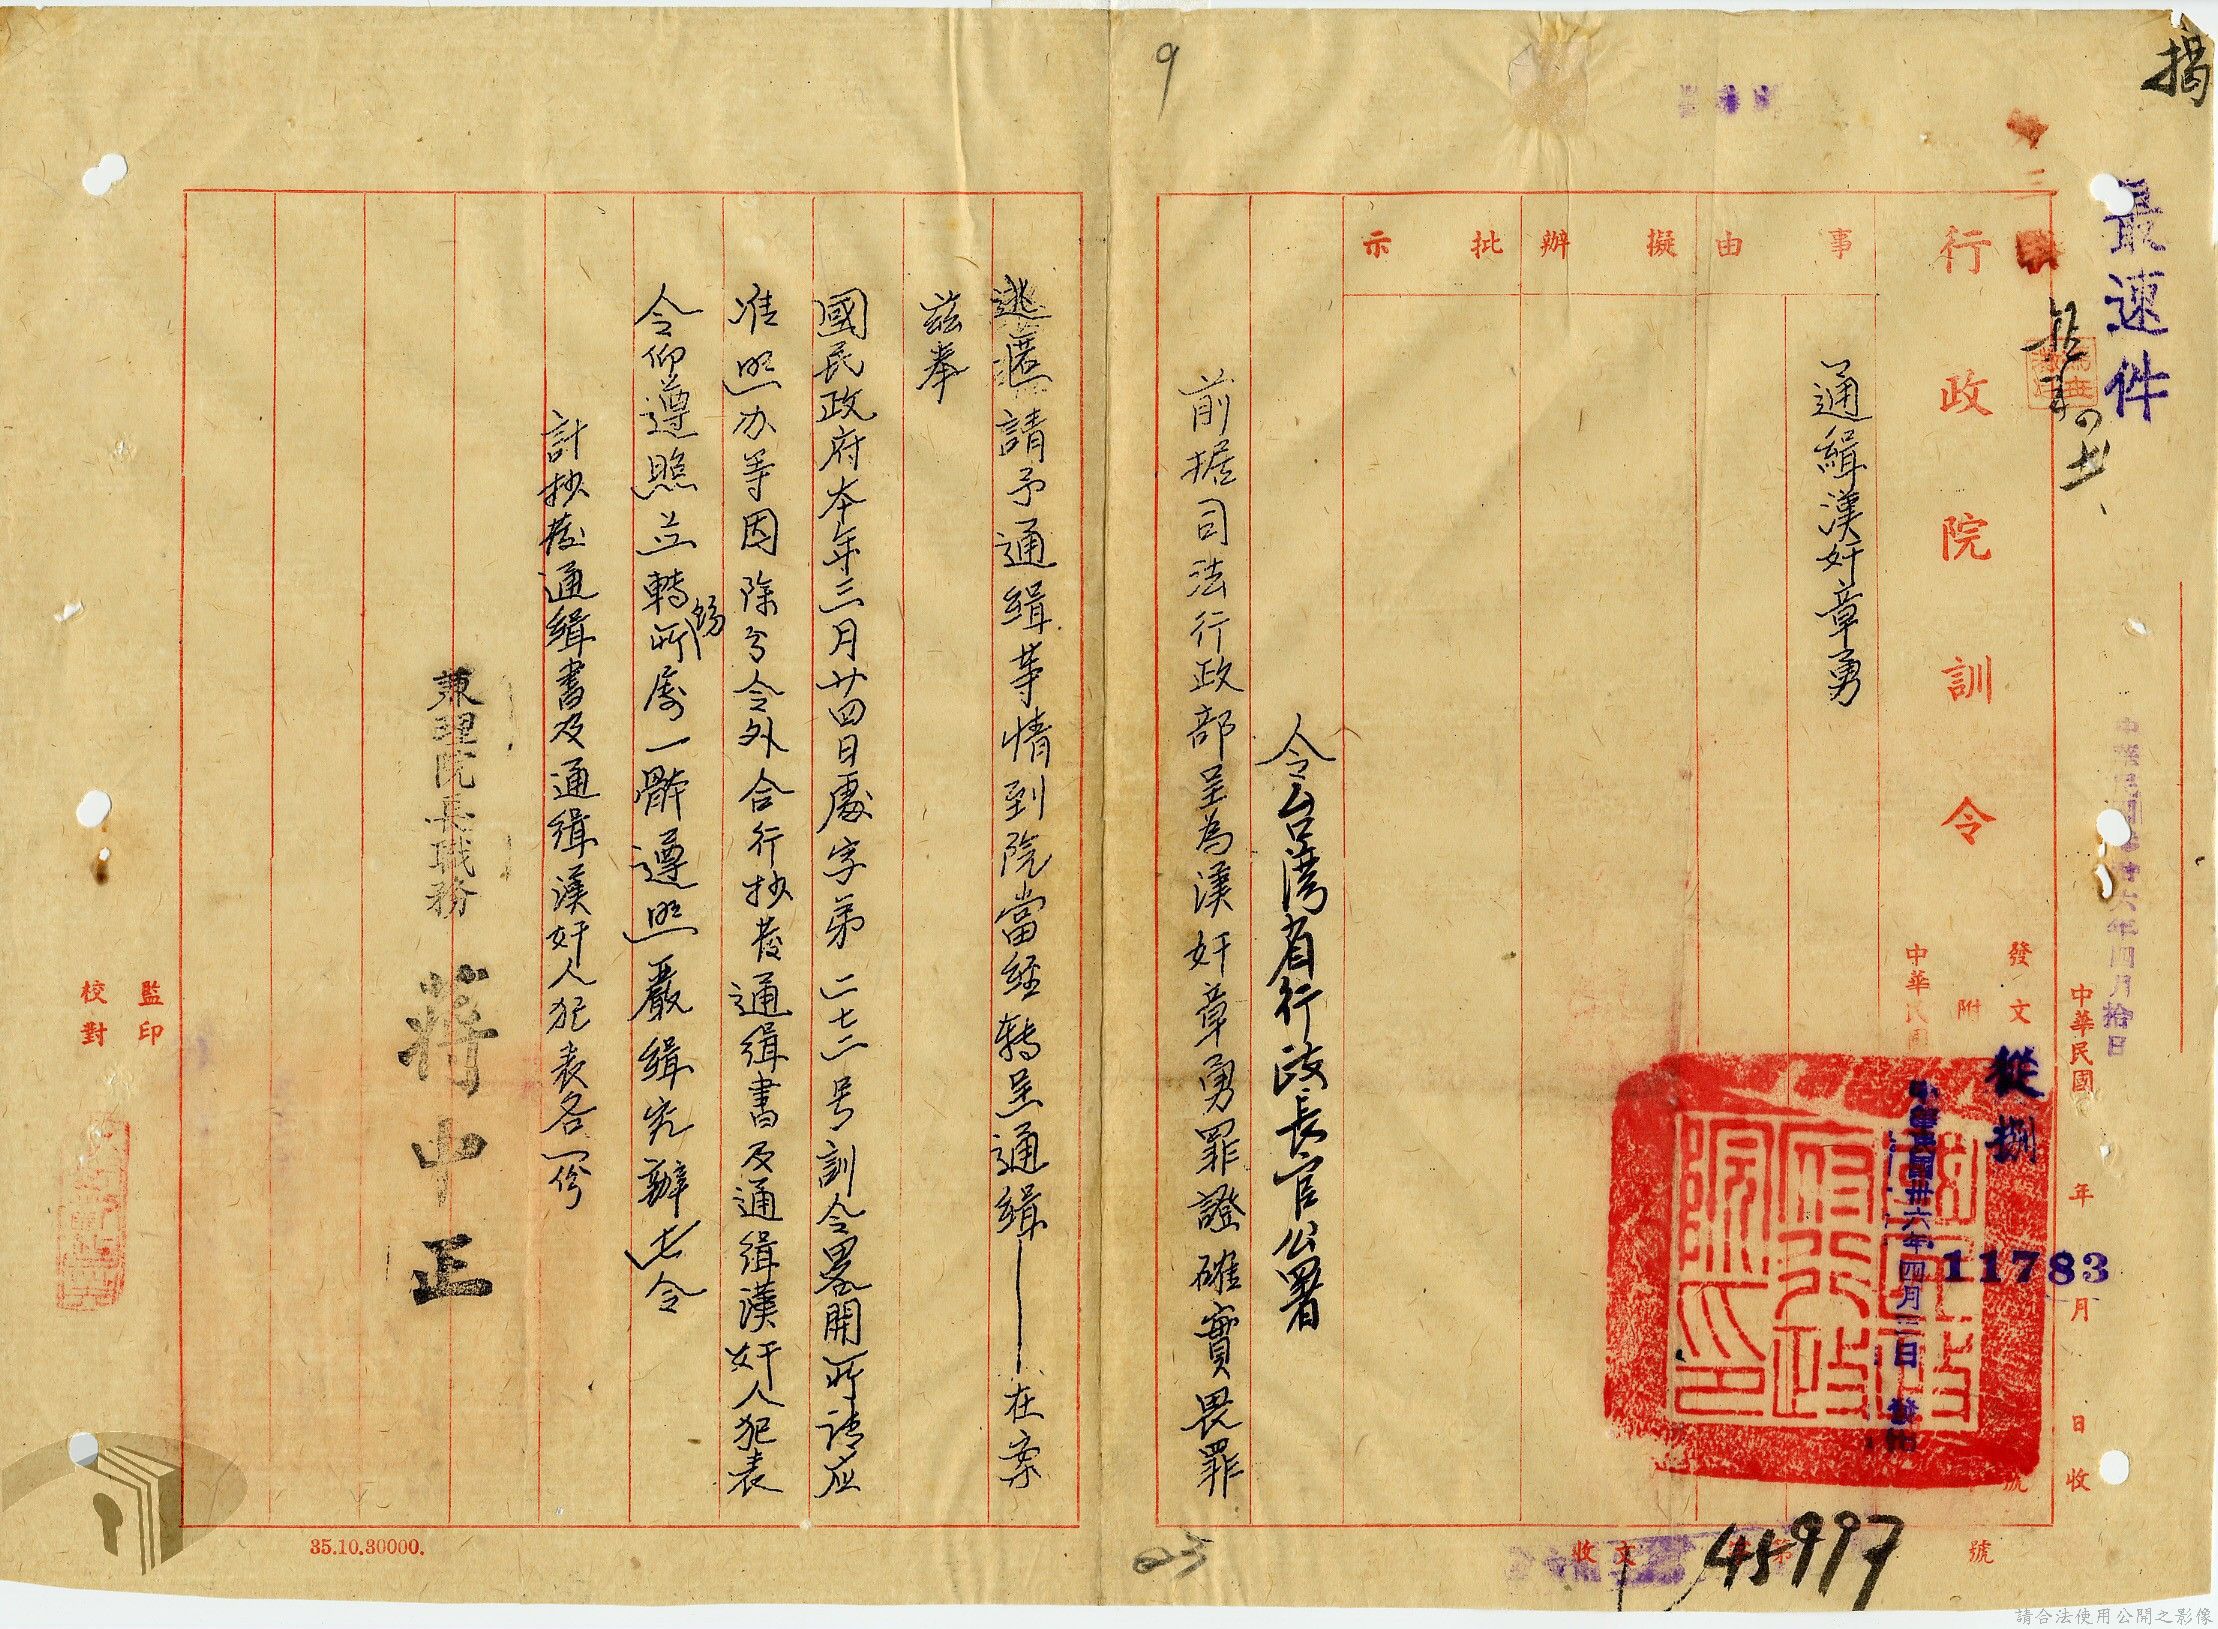 揭
最速件
行政院訓令
事由
擬辦
批示
通緝漢奸章勇
中華民國
年
月
日收
發文
從捌
11783
號
附
中華民國卅六年四月三日
收文
第
45997
號
令台灣省行政長官公署
前据司法行政部呈為漢奸章勇罪證確實畏罪
9
逃匿請予通緝等情到院當經轉呈通緝——在案
茲奉
國民政府本年三月廿四日處字第二七二号訓令畧開所請应
准照办等因除分令外合行抄發通緝書及通緝漢奸人犯表
令仰遵照並轉飭所屬一體遵照嚴緝究辦此令
計抄發通緝書及通緝漢奸人犯表各一份
兼理院長職務 蔣中正
監印
校對
35.10.30000.
請合法使用公開之影像